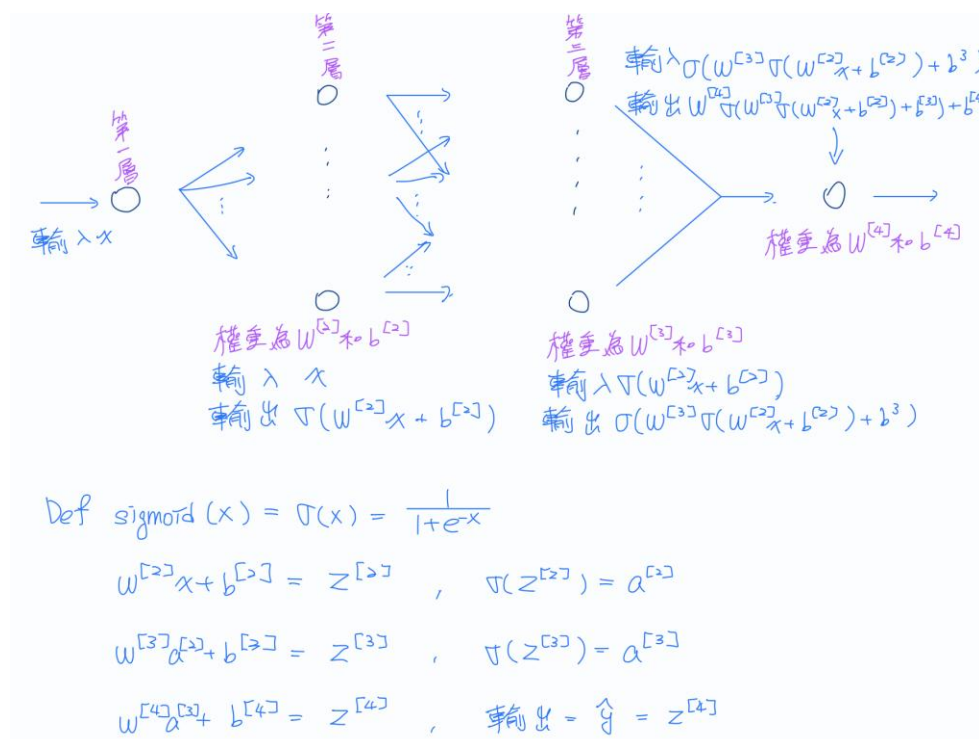 第一層
輸入 x
第二層
權重為 W^[2] 和 b^[2]
輸入 x
輸出 σ(W^[2]x + b^[2])
第三層
權重為 W^[3] 和 b^[3]
輸入 σ(W^[2]x + b^[2])
輸出 σ(W^[3]σ(W^[2]x + b^[2]) + b^3)
輸入 σ(W^[3]σ(W^[2]x + b^[2]) + b^3)
輸出 W^[4]σ(W^[3]σ(W^[2]x + b^[2]) + b^[3]) + b^[4
權重為 W^[4] 和 b^[4]
Def sigmoid(x) = σ(x) = 1/(1+e^-x)
W^[2]x + b^[2] = z^[2] , σ(z^[2]) = a^[2]
W^[3]a^[2] + b^[3] = z^[3] , σ(z^[3]) = a^[3]
W^[4]a^[3] + b^[4] = z^[4] , 輸出 = ŷ = z^[4]